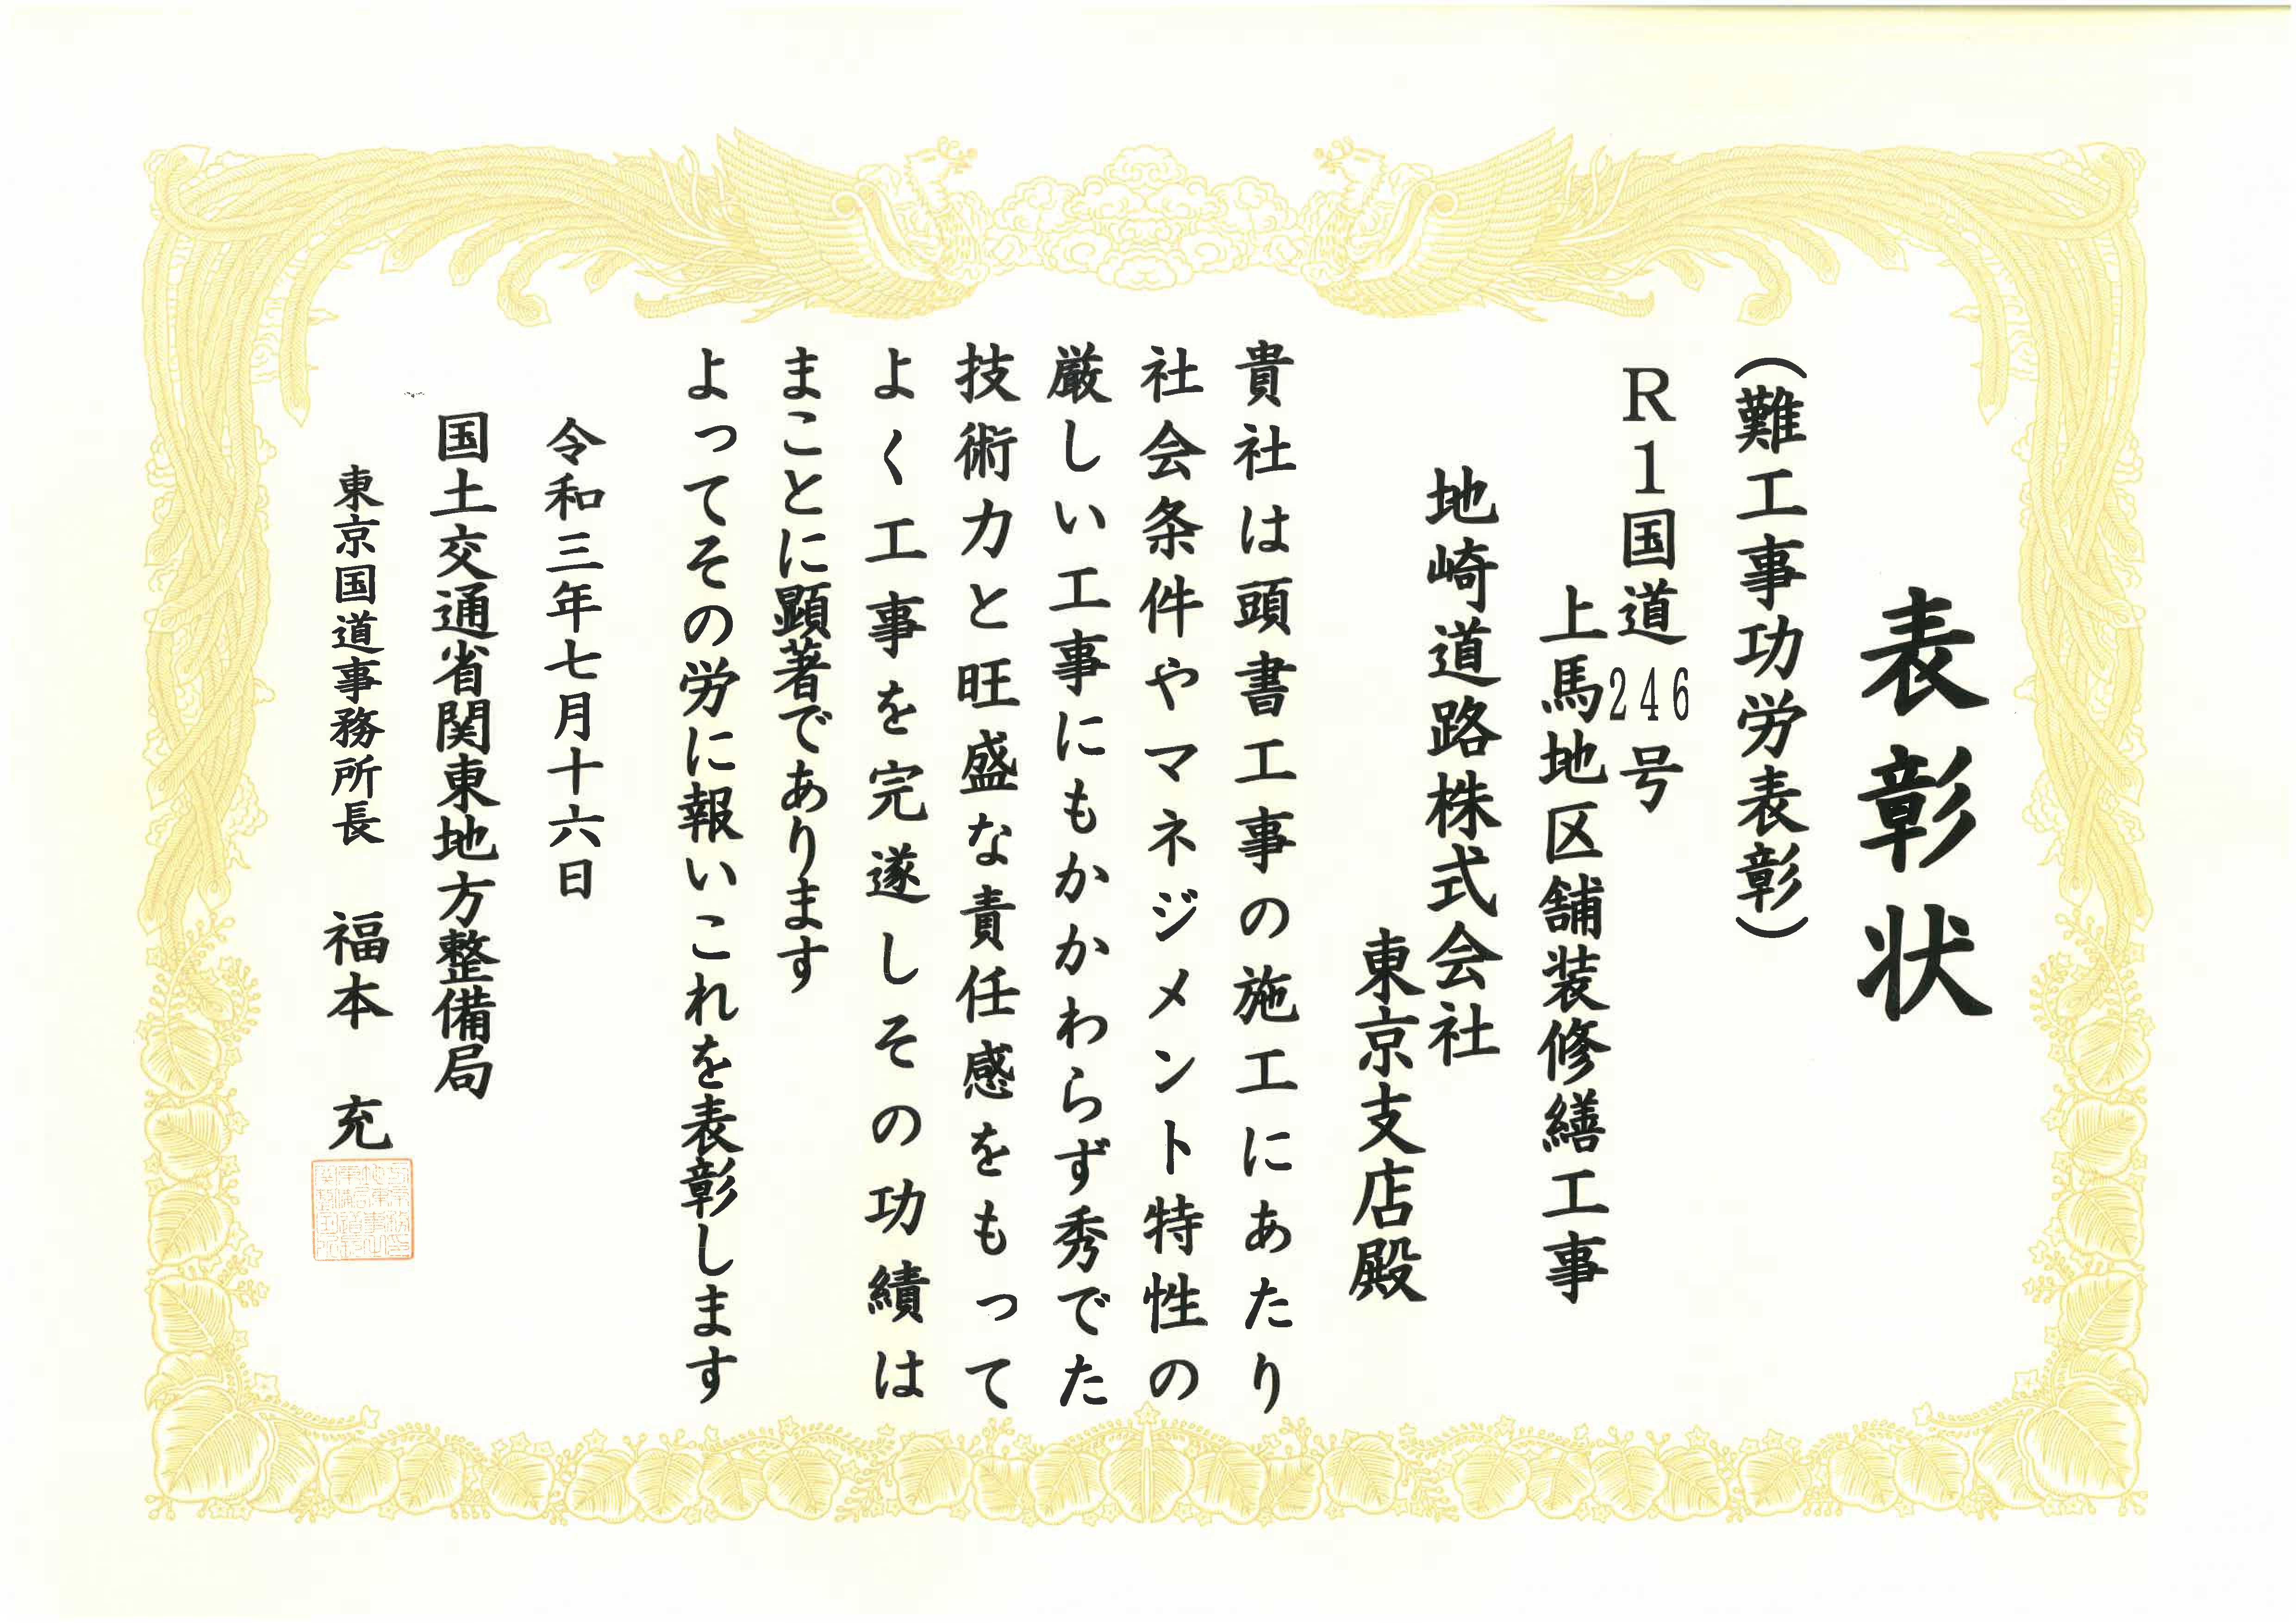 表彰状
(難工事功労表彰)
R1国道246号
上馬地区舗装修繕工事
地崎道路株式会社
東京支店殿
貴社は頭書工事の施工にあたり
社会条件やマネジメント特性の
厳しい工事にもかかわらず秀でた
技術力と旺盛な責任感をもって
よく工事を完遂しその功績は
まことに顕著であります
よってその労に報いこれを表彰します
令和三年七月十六日
国土交通省関東地方整備局
東京国道事務所長 福本 充